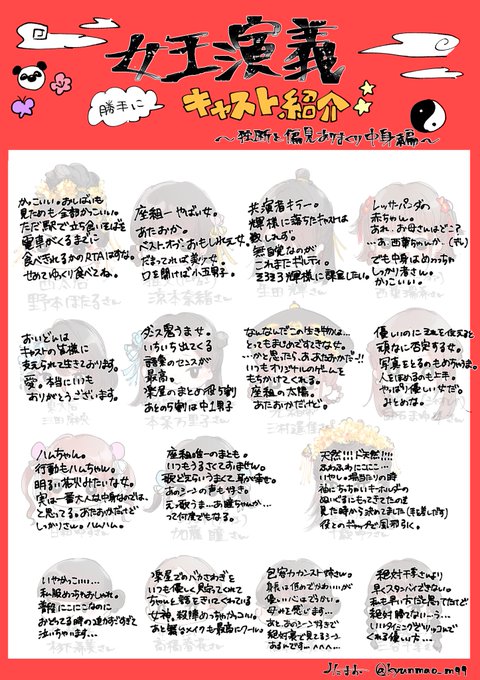 女王演義
勝手に
キャスト紹介
～独断と偏見ありまくり中身編～
かっこいい。おしばいも
見ためも全部かっこいい。
ただ駅で立ち食いそばを
電車がくるまでに
食べきれるかのRTAはすな。
せめてゆっくり食べてね。
座組一やばい女。
あたおか。
ベストオブおもしれえ女。
だまってれば美少女。
口を開けば小五男子。
共演者キラー。
輝様に落ちたキャストは
数しれず。
無自覚なのが
これまたギルティ。
ミミミ輝様に課金したい。
レッサーパンダの
赤ちゃん。
あれ、お母さんはどこ?
でも中身はめっちゃ
しっかり者さん。
かっこいい。
おいどんは
キャストの皆様に
支えられて生きております。
愛。本当にいつも
ありがとうございます。
ダンス鬼うま女。
いちいち出てくる
言葉のセンスが
最高。
楽屋のまとめ役5割
あとの5割は中1男子
なんなんだこの生き物は…
とってもまじめですてきな女。
…かと思ったら、ああたおかだ!!
いつもオリジナルのゲームを
もちかけてくれる。
座組の太陽。
あたおかだけど。
優しいのにそれを伝えると
頑なに否定する女。
写真をとるのもめちゃうま。
人をほめるのも上手。
やっぱり優しい女だ。
みとめな。
ハムちゃん。
行動もハムちゃん。
明るい花火みたいな女。
実は一番大人な中身なのでは、
と思ってる。あたおかだけど
しっかりさん。ハムハム。
座組唯一のまとも。
いつもうるさくてすません。
歌どえらいうまくて耳が幸せ。
あのシーンの声も好き。
えっ歌うま…あ瞳ちゃんか…
って何度でもなる。
天然!!!ド天然!!!
ふわふわにこにこ…
いやし。場当たりの時
袖にちっちゃいキーホルダーの
ぬいぐるみもってきてたのを
見た時から決めてました
役とのギャップで風邪引く。
いやかっこいい…
私服めっちゃおしゃれ。
普段にこにこなのに
おどってる時の迫力すごくて
泣いちゃいます…
楽屋でのバカさわぎを
いつも優しく見守ってくれて
ちゃんと話をきいてくれている
女神。殺陣めっちゃかっこいい。
あと髪もメイクも最高にクール。
包容力カンスト姉さん。
身長は低めでかわいいが
優しいいいにはでっかい。
母みを感じます…
あと、あのシーン好きで
絶対裏で見てるシーン
あるんです…へへへ…
絶対千李さんより
早くスタンバイできない。
私も早い方だと思ってたけど
絶対勝てない…う…
いいタイミングでツッコんで
くれる優しい方…
みたまお
@kyunmao_m99